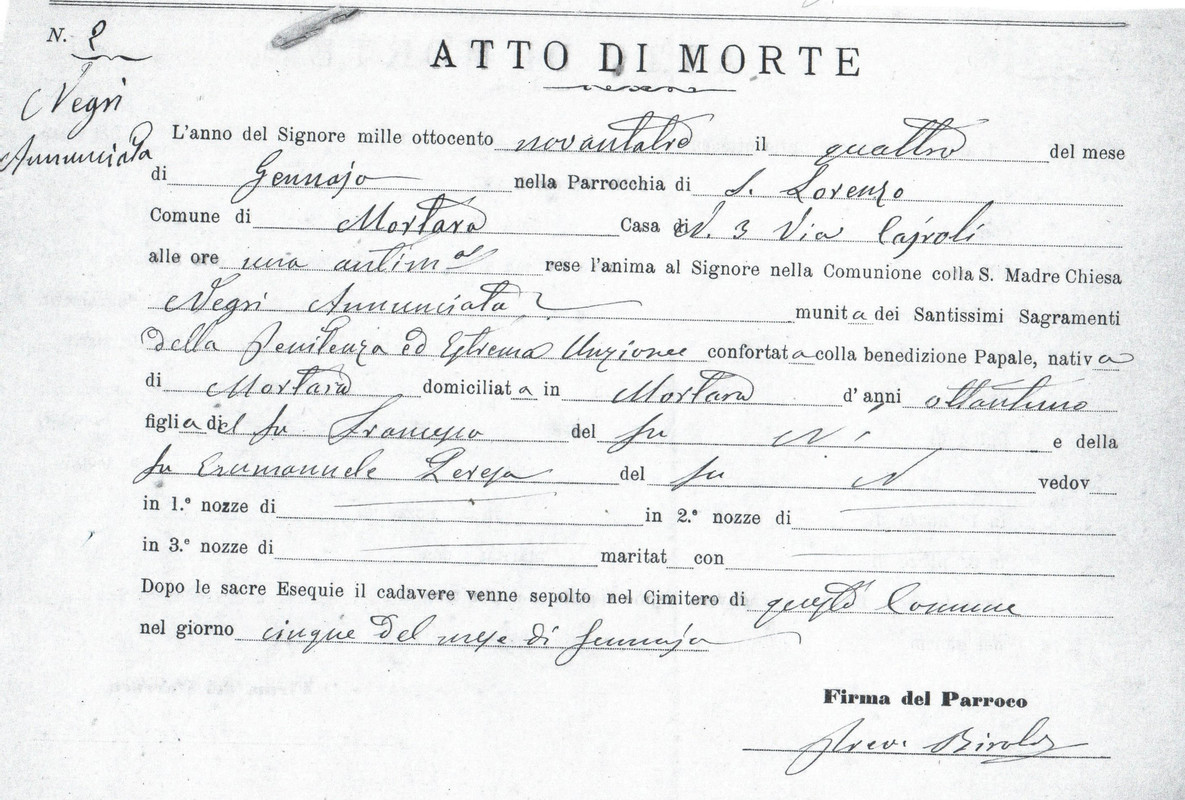 N. 2
ATTO DI MORTE
Negri
Annunciata
L'anno del Signore mille ottocento novantatre il quattro del mese
di Gennajo nella Parrocchia di S. Lorenzo
Comune di Mortara Casa N. 3 Via Cajroli
alle ore una antim. rese l'anima al Signore nella Comunione colla S. Madre Chiesa
Negri Annunciata munita dei Santissimi Sagramenti
della Penitenza ed Estrema Unzione confortata colla benedizione Papale, nativa
di Mortara domiciliata in Mortara d'anni ottantuno
figlia del fu Francesco del fu N. e della
fu Eramanuele Teresa del fu N vedov
in 1.e nozze di in 2.e nozze di
in 3.e nozze di maritat con
Dopo le sacre Esequie il cadavere venne sepolto nel Cimitero di questo Comune
nel giorno cinque del mese di Gennajo
Firma del Parroco